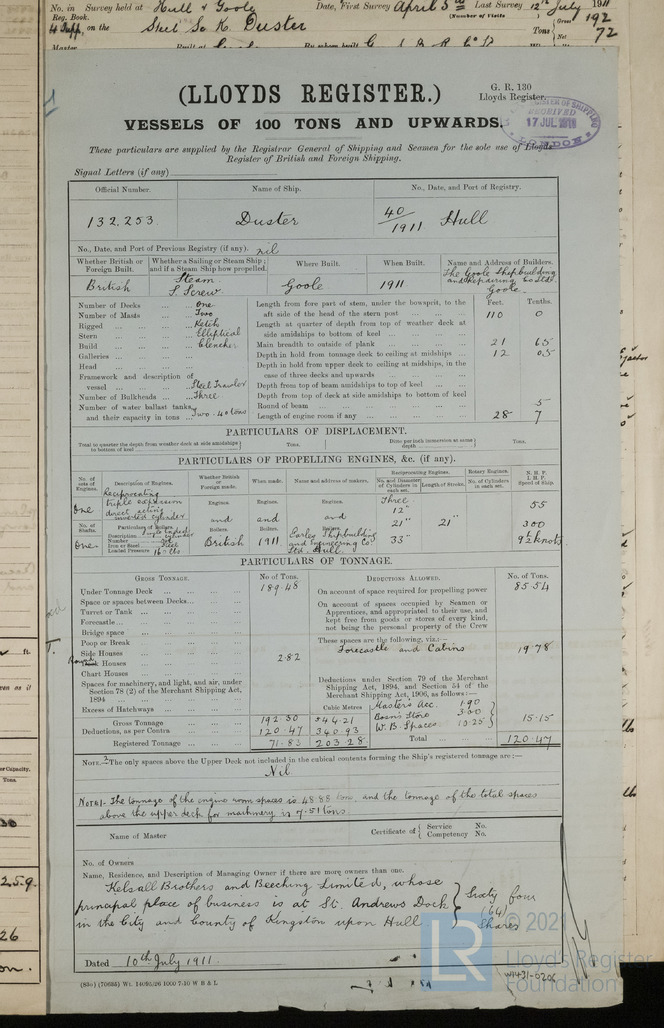 No. in Survey held at Hull & Goole Date, First Survey April 5th Last Survey 12th July 1911
Reg. Book. (Number of Visits
4 Supp. on the Steel Sc K. Duster Tons { Gross 192
Net 72
Master Built at By whom built
(LLOYDS REGISTER.)
G. R. 130
Lloyds Register.
VESSELS OF 100 TONS AND UPWARDS.
RECEIVED
17 JUL 1911
LONDON
These particulars are supplied by the Registrar General of Shipping and Seamen for the sole use of Lloyds
Register of British and Foreign Shipping.
Signal Letters (if any)
Official Number. Name of Ship. No., Date, and Port of Registry.
132,253 Duster 40/1911 Hull
No., Date, and Port of Previous Registry (if any). nil
Whether British or Foreign Built. Whether a Sailing or Steam Ship; and if a Steam Ship how propelled. Where Built. When Built. Name and Address of Builders.
British Steam S. Screw Goole 1911 The Goole Shipbuilding and Repairing Co Ltd. Goole.
Feet. Tenths.
Number of Decks ... One
Number of Masts ... Two
Rigged ... Ketch
Stern ... Elliptical
Build ... Clencher
Galleries ...
Head ...
Framework and description of
vessel ... Steel Trawler
Number of Bulkheads ... Three
Number of water ballast tanks,
and their capacity in tons ... Two - 40 tons
Length from fore part of stem, under the bowsprit, to the
aft side of the head of the stern post ... 110 0
Length at quarter of depth from top of weather deck at
side amidships to bottom of keel ...
Main breadth to outside of plank ... 21 65
Depth in hold from tonnage deck to ceiling at midships ... 12 05
Depth in hold from upper deck to ceiling at midships, in the
case of three decks and upwards ...
Depth from top of beam amidships to top of keel ...
Depth from top of deck at side amidships to bottom of keel
Round of beam ... 5
Length of engine room if any ... 28 7
PARTICULARS OF DISPLACEMENT.
Total to quarter the depth from weather deck at side amidships to bottom of keel Tons. Ditto per inch immersion at same depth Tons.
PARTICULARS OF PROPELLING ENGINES, &c. (if any).
No. of sets of Engines. Description of Engines. Whether British or Foreign made. When made. Name and address of makers. Reciprocating Engines. Rotary Engines. N. H. P.
No. and Diameter of Cylinders in each set. Length of Stroke. No. of Cylinders in each set. I. H. P. Speed of Ship.
One Reciprocating triple expansion direct acting inverted cylinder Engines. Engines. Engines. Three 12" 55
No. of Shafts. Particulars of Boilers. and and and
Boilers. Boilers. Boilers. 21" 21" 300
One Description Number Iron or Steel Steel Loaded Pressure British 1911 Earles Shipbuilding and Engineering Co Ltd. Hull 33" 9½ knots
PARTICULARS OF TONNAGE.
GROSS TONNAGE. No. of Tons. DEDUCTIONS ALLOWED. No. of Tons.
Under Tonnage Deck ... 189.48
Space or spaces between Decks ...
Turret or Tank ...
Forecastle ...
Bridge space ...
Poop or Break ...
Side Houses ...
Houses ... 2.82
Chart Houses ...
Spaces for machinery, and light, and air, under
Section 78 (2) of the Merchant Shipping Act,
1894 ...
Excess of Hatchways ... Cubic Metres
Gross Tonnage ... 192.30 544.21
Deductions, as per Contra ... 120.47 340.93
Registered Tonnage ... 71.83 203.28
On account of space required for propelling power 85.54
On account of spaces occupied by Seamen or
Apprentices, and appropriated to their use, and
kept free from goods or stores of every kind,
not being the personal property of the Crew
These spaces are the following, viz.:—
Forecastle and Cabins 19.78
Deductions under Section 79 of the Merchant
Shipping Act, 1894, and Section 54 of the
Merchant Shipping Act, 1906, as follows:—
Master's Acc. 1.90
Bosn's Store 3.00
W. B. Spaces 10.25 } 15.15
Total ... 120.47
NOTE.2—The only spaces above the Upper Deck not included in the cubical contents forming the Ship's registered tonnage are:—
Nil
Note 1 - The tonnage of the engine room spaces is 48.88 tons, and the tonnage of the total spaces
above the upper deck for machinery is 7.51 tons
Name of Master Certificate of { Service No.
Competency No.
No. of Owners
Name, Residence, and Description of Managing Owner if there are more owners than one.
Kelsall Brothers and Beeching Limited, whose
principal place of business is at St. Andrews Dock
in the City and County of Kingston upon Hull } Sixty four
(64)
Shares
Dated 10th July 1911.
(830) (70635) Wt. 14095/26 1000 7-10 W B & L
© 2021
LR
Lloyd's Register
Foundation
W1431-0206